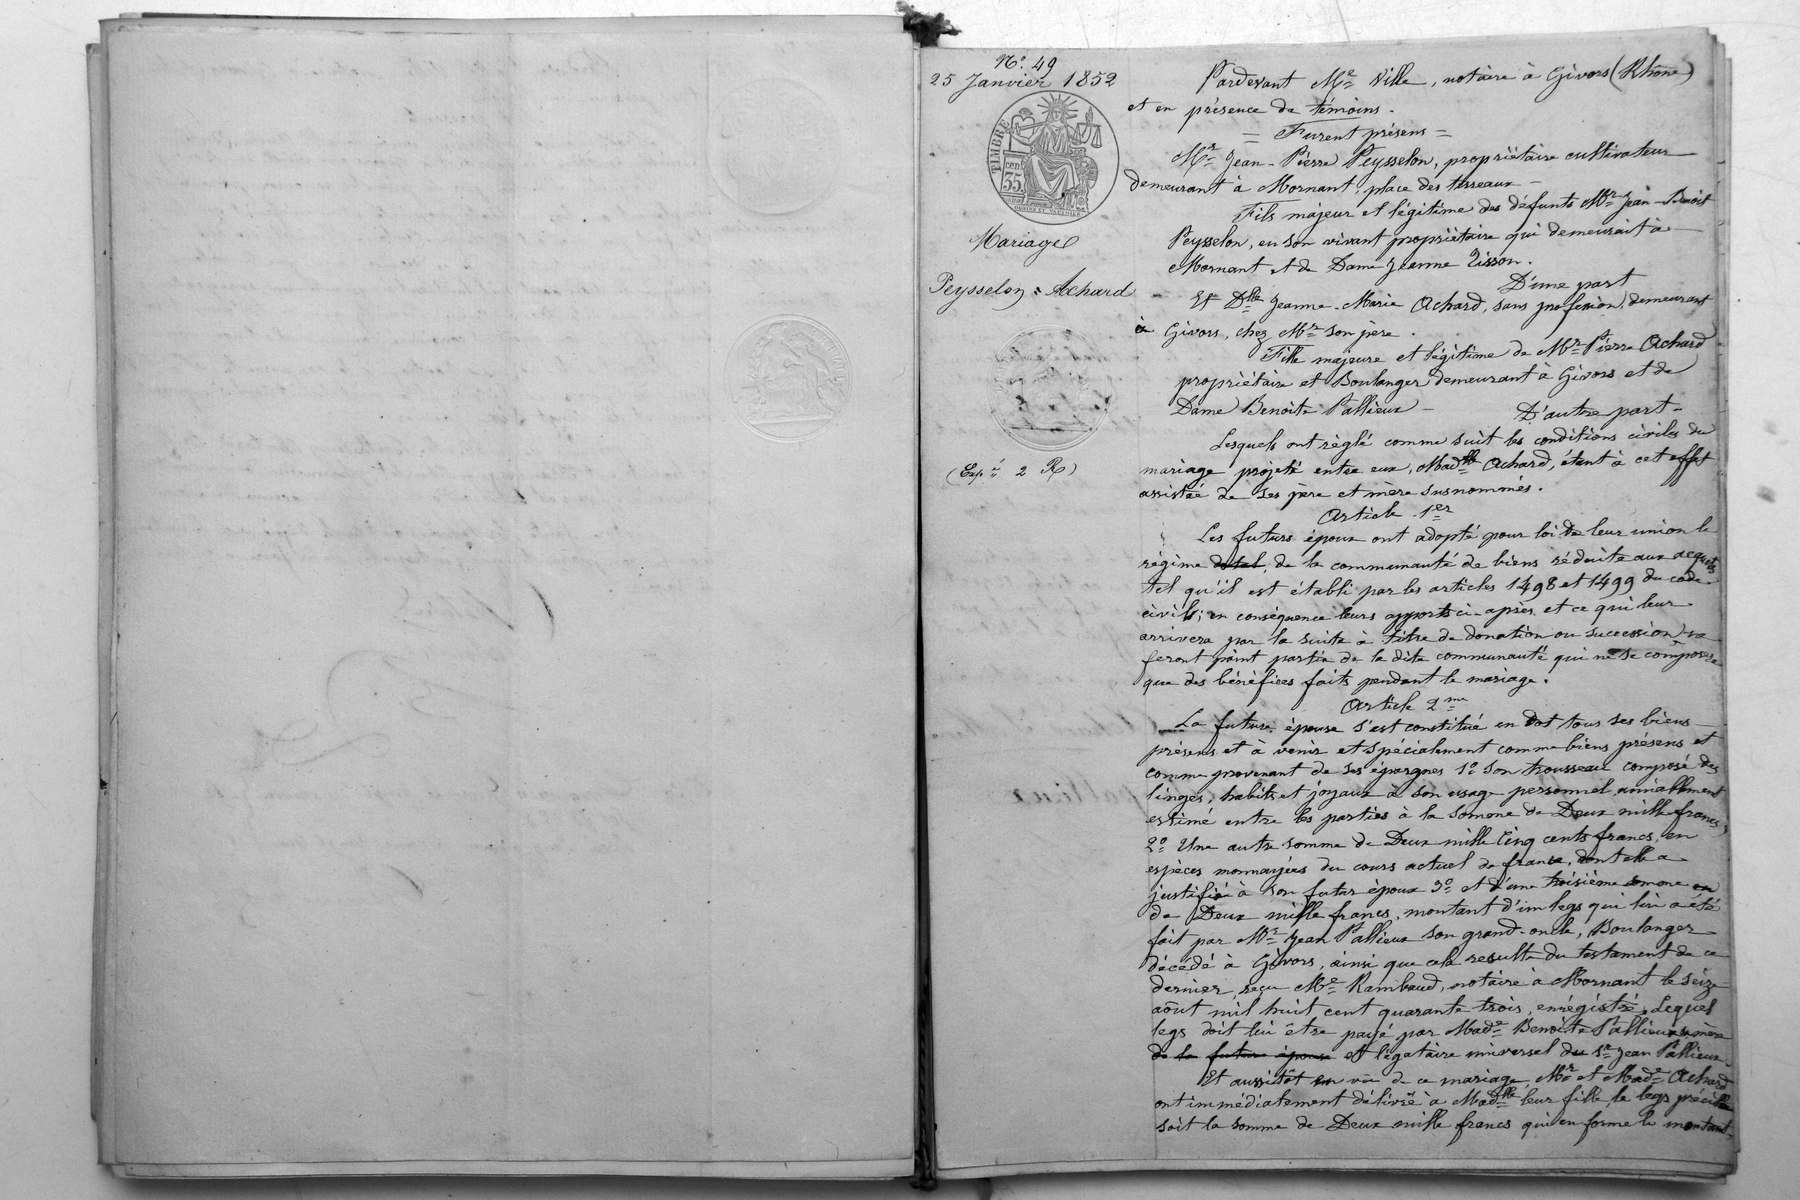 N° 49
25 Janvier 1852
TIMBRE
cen
35
Mariage
Peysselon = Achard
(Exp.é 2 R)
Pardevant Me Ville, notaire à Givors (Rhône)
et en présence de témoins.
= Furent présens =
Mr Jean-Pierre Peysselon, propriétaire cultivateur
demeurant à Mornant, place des terreaux
Fils majeur et légitime des défunts Mr Jean-Benoit
Peysselon, en son vivant propriétaire qui demeurait à
Mornant et de Dame Jeanne Zisson.
D'une part
Et Dlle Jeanne-Marie Achard, sans profession, demeurant
à Givors, chez Mr son père.
Fille majeure et légitime de Mr Pierre Achard
propriétaire et Boulanger demeurant à Givors et de
Dame Benoite Pallieux
D'autre part
Lesquels ont réglé comme suit les conditions civiles du
mariage projeté entre eux, Madlle Achard, étant à cet effet
assistée de ses père et mère susnommés.
Article 1er
Les futurs époux ont adopté pour loi de leur union le
régime dotal, de la communauté de biens réduite aux acquets
tel qu'il est établi par les articles 1498 et 1499 du code
civil; en conséquence leurs apports ci-après et ce qui leur
arrivera par la suite à titre de donation ou succession, ne
feront point partie de la dite communauté qui ne se composera
que des bénéfices faits pendant le mariage.
Article 2me
La future épouse s'est constitué en dot tous ses biens
présens et à venir et spécialement comme biens présens et
comme provenant de ses épargnes 1° son trousseau composé des
linges, habits et joyaux à son usage personnel, amiablement
estimé entre les parties à la somme de Deux mille francs,
2° Une autre somme de Deux mille Cinq cents francs, en
espèces monnayées du cours actuel de france, dont elle a
justifié à son futur époux 3° et d'une troisième somme en
de Deux mille francs, montant d'un legs qui lui a été
fait par Mr Jean Pallieux son grand-oncle, Boulanger
décédé à Givors, ainsi que cela resulte du testament de ce
dernier, reçu Me Rambaud, notaire à Mornant le seize
août mil huit cent quarante trois, enrégistré. Lequel
legs doit lui être payé par Made Benoite Pallieux sa mère
de la future épouse et légataire universel du Sr Jean Pallieux
Et aussitôt en vue de ce mariage, Mr et Made Achard
ont immédiatement délivré à Madlle leur fille le legs précité
soit la somme de Deux mille francs qui en forme le montant.